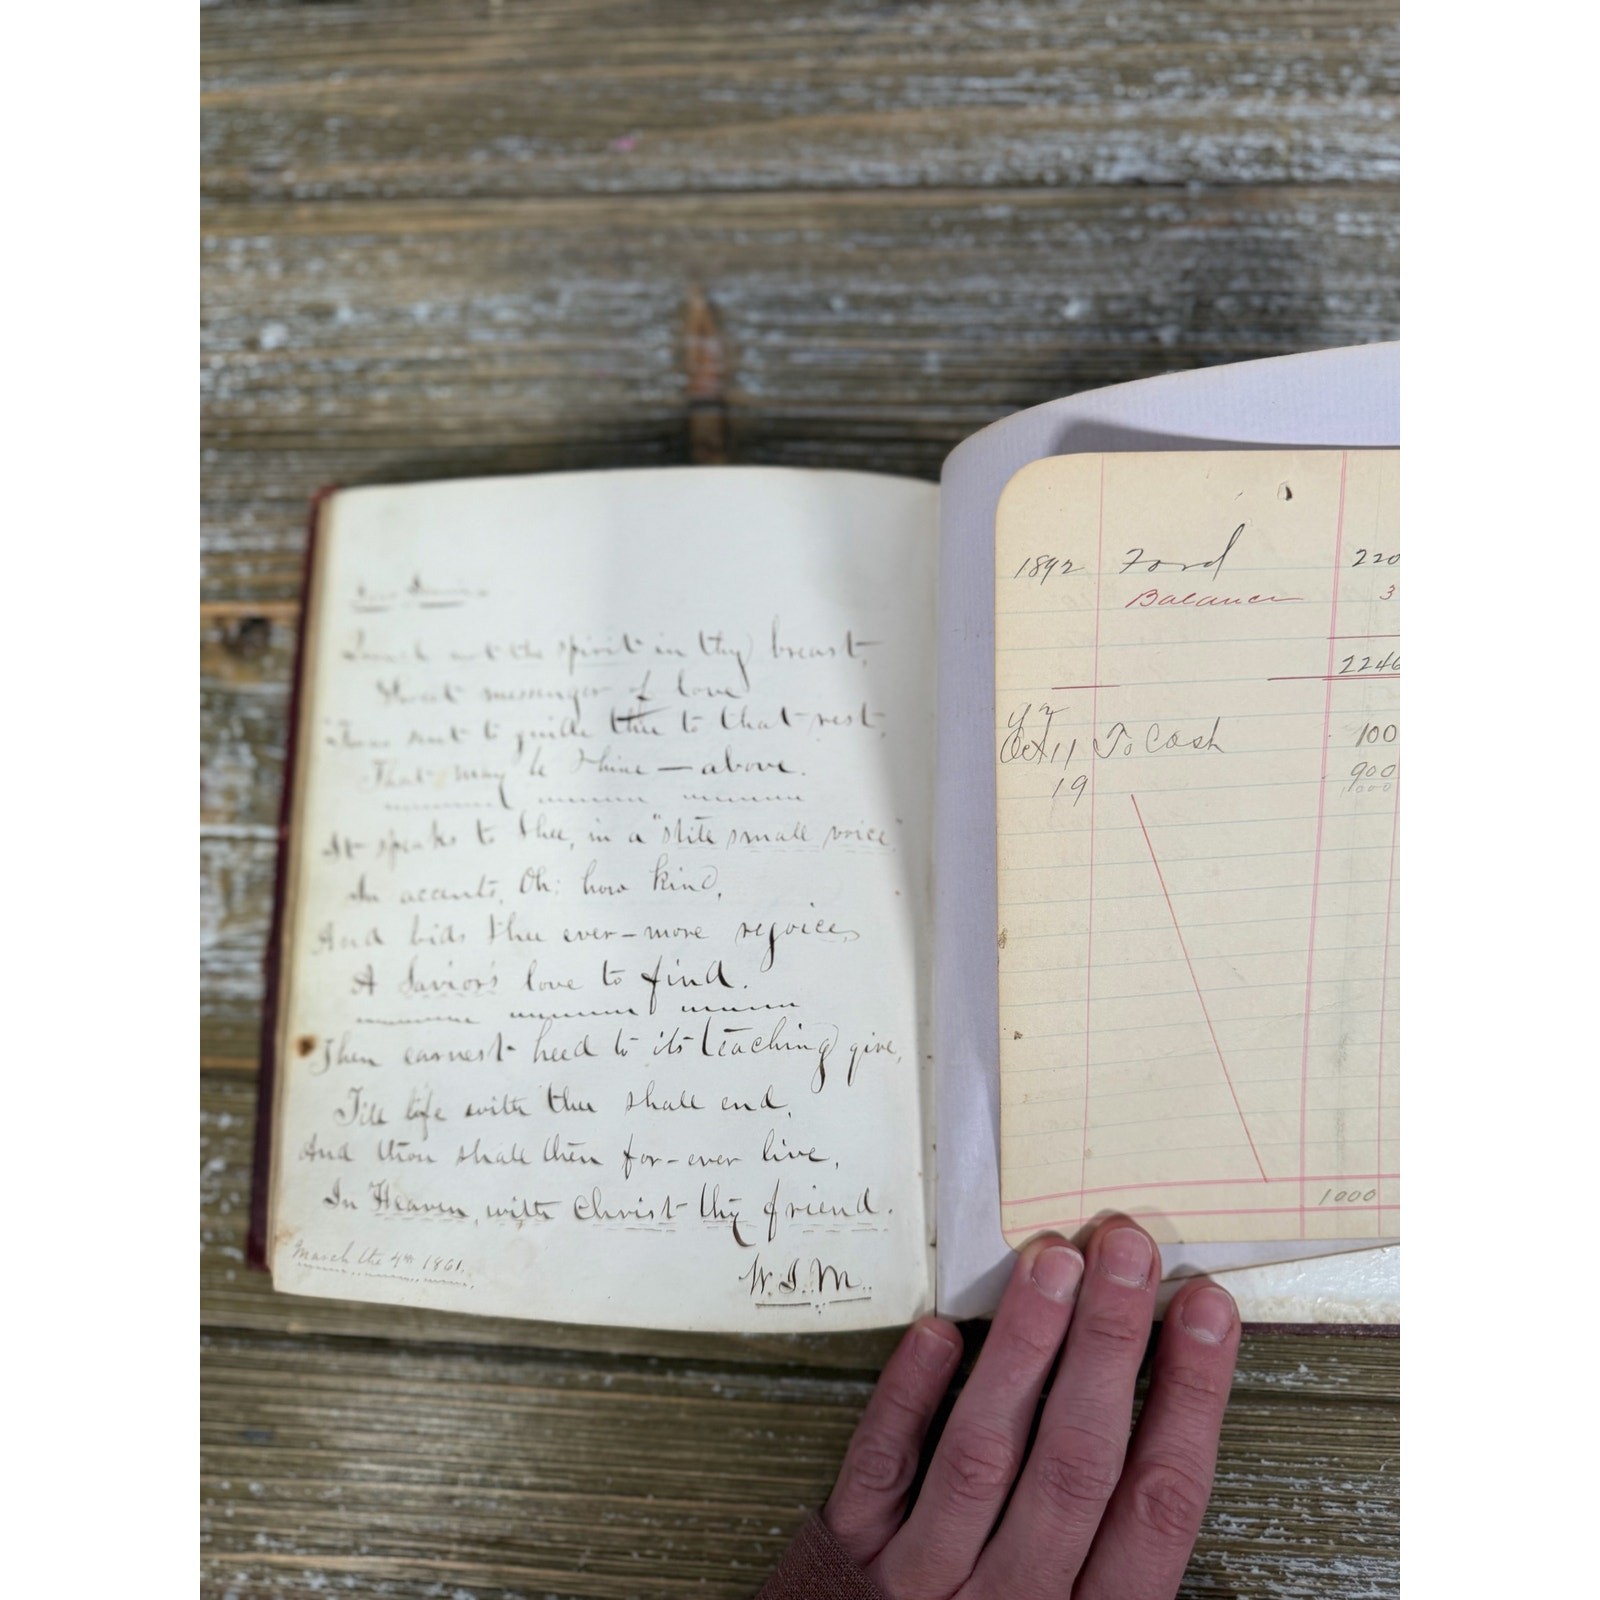 not the spirit in thy breast,
messenger of love
sent to guide thee to that rest,
That may be thine — above.
It speaks to thee, in a "still small voice"
In accents, Oh; how kind,
And bids thee ever-more rejoice,
A Savior's love to find.
Then earnest heed to its teaching give,
Till life with thee shall end,
And thou shall then for-ever live,
In Heaven, with Christ thy friend.
March the 4th 1861.
W. J. M.
1892 Ford 220
Balance 3
2246
92
Oct 11 To Cash 100
19 900
1000
1000